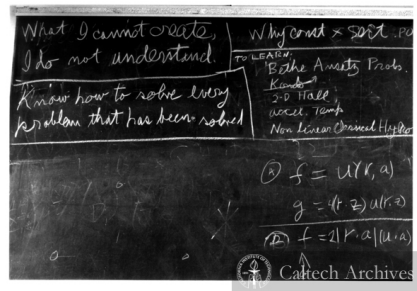 What I cannot create,
I do not understand.
Know how to solve every
problem that has been solved
Why const × sort
TO LEARN:
Bethe Ansatz Probs.
Kondo
2-D Hall
accel. Temp
Non Linear Classical Hydro
f = u(r, a)
g = u(r, z)
f = 2|r·a|(u·a)
Caltech Archives